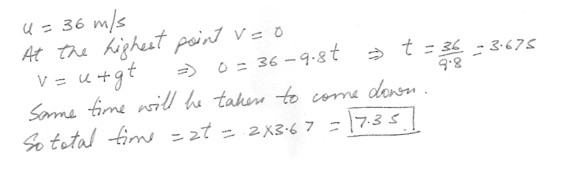 u = 36 m/s
At the highest point v = 0
v = u + gt ⇒ 0 = 36 - 9.8t ⇒ t = 36/9.8 = 3.67s
Same time will be taken to come down.
So total time = 2t = 2×3.67 = 7.35